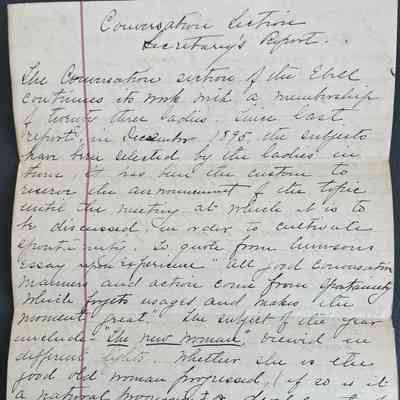 Conversation Section
Secretary's Report.
The Conversation section of the Ebell
continues its work with a membership
of twenty three ladies. Since last
report, in December 1895, the subjects
have been selected by the ladies in
turn. It has been the custom to
reserve the announcement of the topic
until the meeting at which it is to
be discussed in order to cultivate
spontaneity. To quote from Emersons
essay upon Experience "All good Conversation
manners and action come from spontaneity
which forgets usages and makes the
moment great." The subject of the year
include "The new Woman, viewed in
different lights. Whether she is the
good old woman progressed, (if so is it
a natural